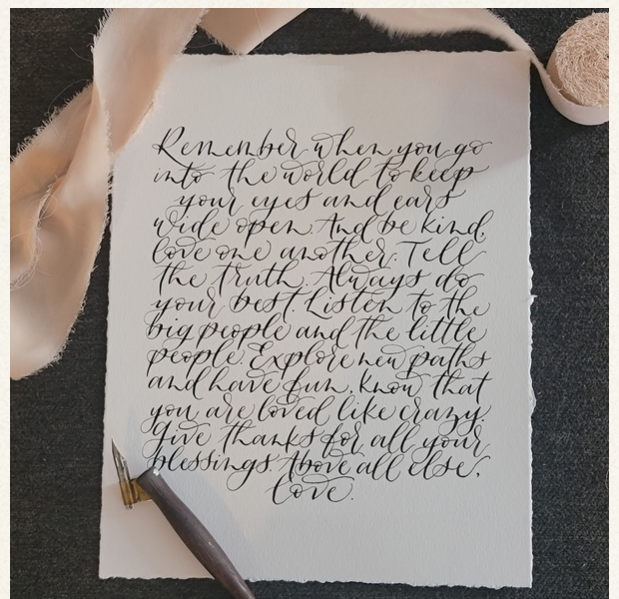 Remember when you go
into the world to keep
your eyes and ears
wide open. And be kind,
love one another. Tell
the truth. Always do
your best. Listen to the
big people and the little
people. Explore new paths
and have fun, know that
you are loved like crazy.
Give thanks for all your
blessings. Above all else,
love.